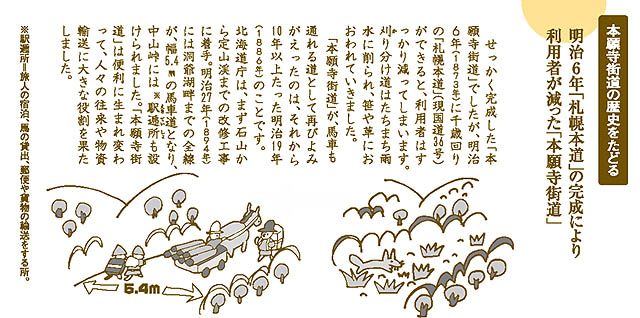 本願寺街道の歴史をたどる
明治6年「札幌本道」の完成により
利用者が減った「本願寺街道」
せっかく完成した「本
願寺街道」でしたが、明治
6年（1873年）に千歳回り
の「札幌本道」（現国道36号）
ができると、利用者はす
っかり減ってしまいます。
刈り分け道はたちまち雨
水に削られ、笹や草にお
おわれていきました。
「本願寺街道」が、馬車も
通れる道として再びよみ
がえったのは、それから
10年以上たった明治19年
（1886年）のことです。
北海道庁は、まず石山か
ら定山渓までの改修工事
に着手。明治27年（1894年）
には洞爺湖畔までの全線
が、幅5.4mの馬車道となり、
中山峠には※駅逓所も設
けられました。「本願寺街
道」は便利に生まれ変わ
って、人々の往来や物資
輸送に大きな役割を果た
しました。
※駅逓所＝旅人の宿泊、馬の貸出、郵便や貨物の輸送をする所。
5.4m